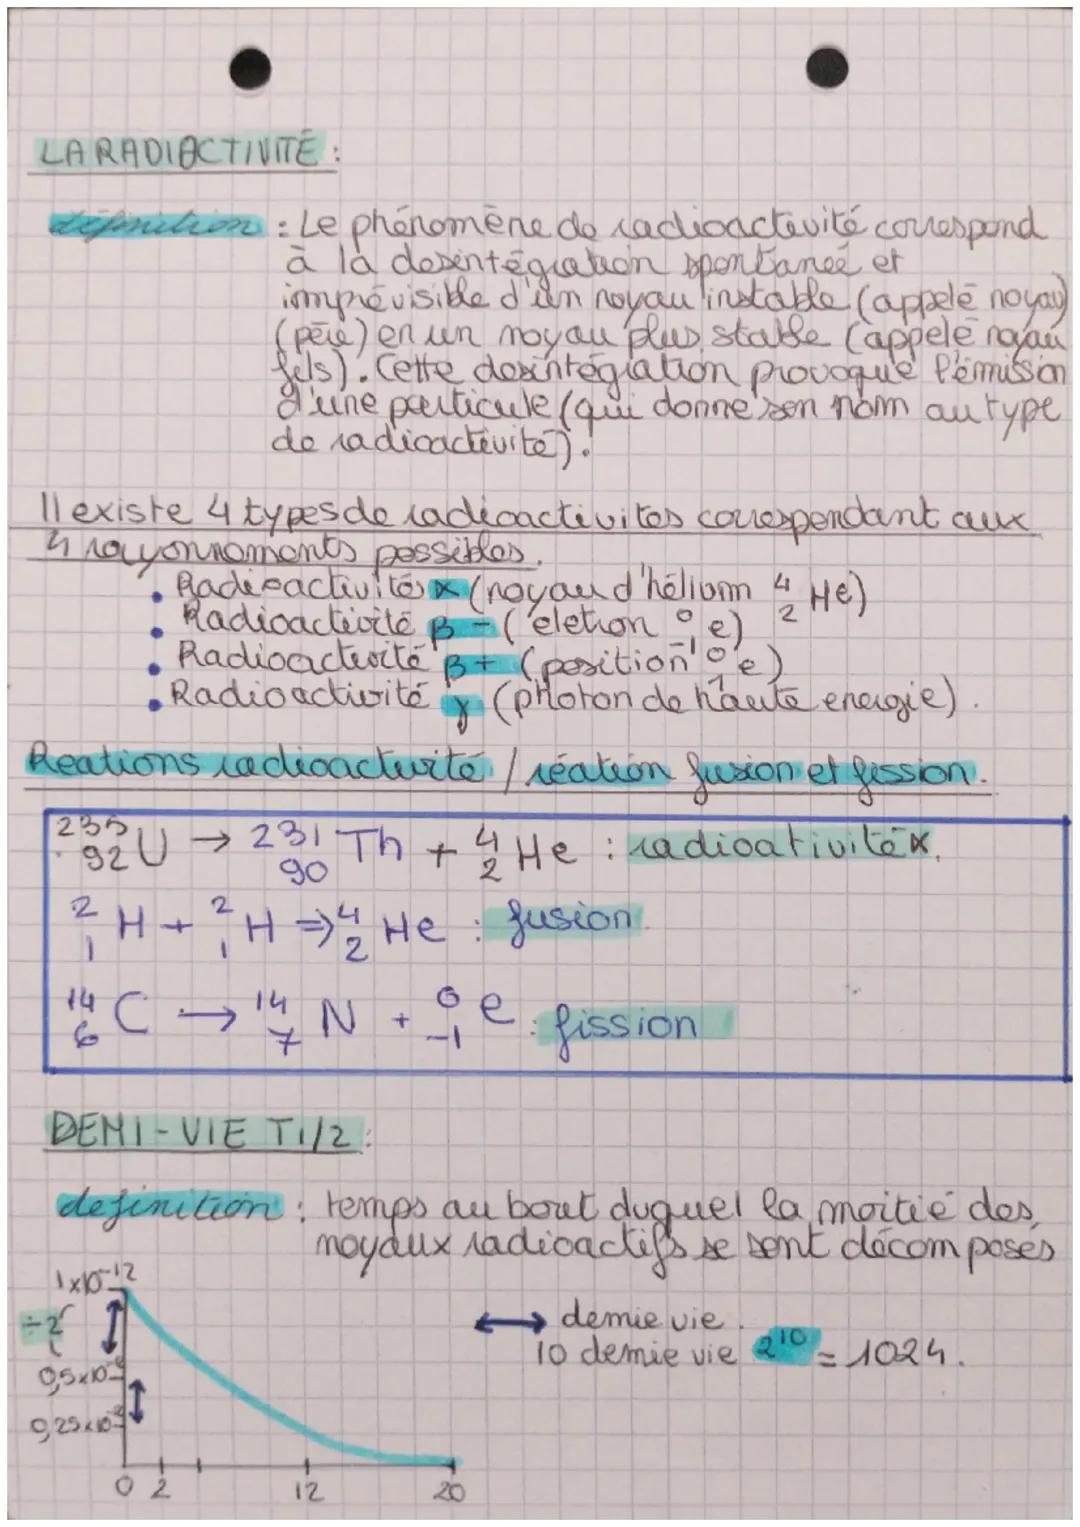 LA RADIOACTIVITÉ :
définition : Le phénomène de radioactivité correspond
à la desintégration spontaneé et
imprévisible d'un noyau instable (appelé noyau)
(père) en un noyau plus stable (appelé noyau
fils). Cette desintégration provoque l'émission
d'une particule (qui donne son nom au type
de radioactivité).
Il existe 4 types de radioactivites correspendant aux
4 rayonnements possibles.
• Radioactivités α (noyau d'hélium ⁴₂ He)
• Radioactivité β - (eletron ⁰₋₁ e)
• Radioactivité β + (position ⁰₁ e)
• Radioactivité γ (photon de haute energie).
Reations radioactivité / réation fusion et fission.
²³⁵₉₂ U → ²³¹₉₀ Th + ⁴₂ He : radioativité α.
²₁ H + ²₁ H ⇒ ⁴₂ He : fusion
¹⁴₆ C → ¹⁴₇ N + ⁰₋₁ e : fission
DEMI-VIE T1/2 :
definition : temps au bout duquel la moitié des
noyaux radioactifs se sont décomposés
1x10⁻¹²
÷2
0,5x10
0,25x10
0 2 12 20
↔ demie vie.
10 demie vie 2¹⁰ = 1024.